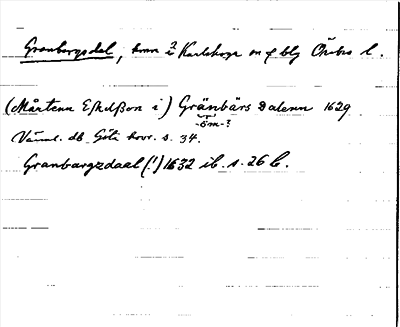 Granbergsdal, hmn ? i Karlskoga sn o bg Örebro l.
(Mårtenn Eskelßon i) Gränbärs Dalenn 1629
-öm-?
Värml. db Göta hovr. s. 34.
Granbargzdaal (!) 1632 ib. s. 26 b.